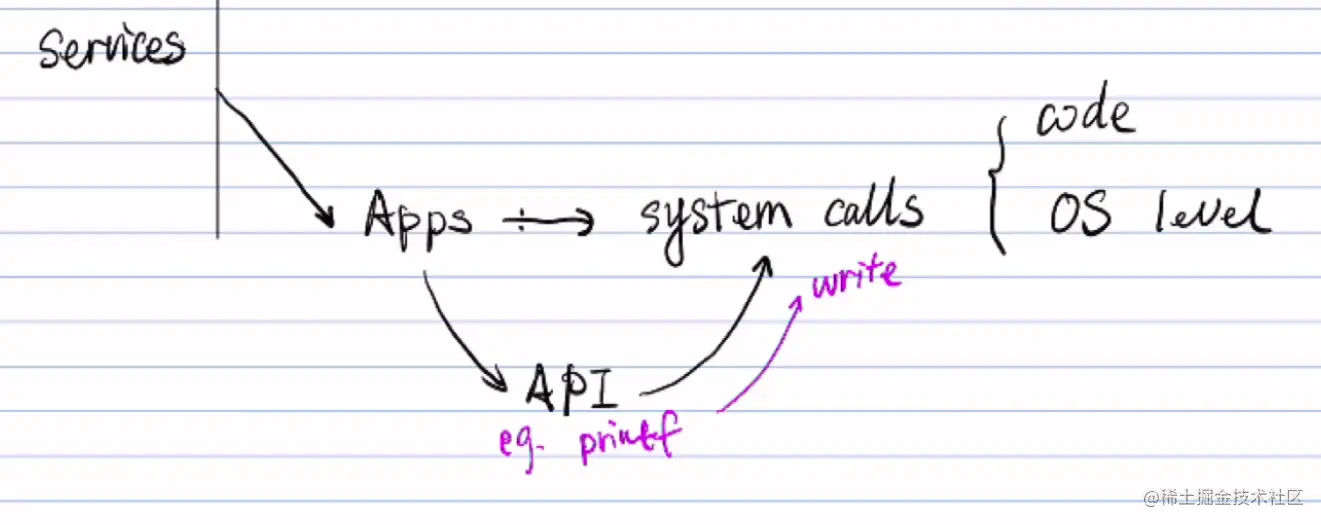 Services
code
Apps ÷→ system calls { OS level
write
API
eg. printf
@稀土掘金技术社区